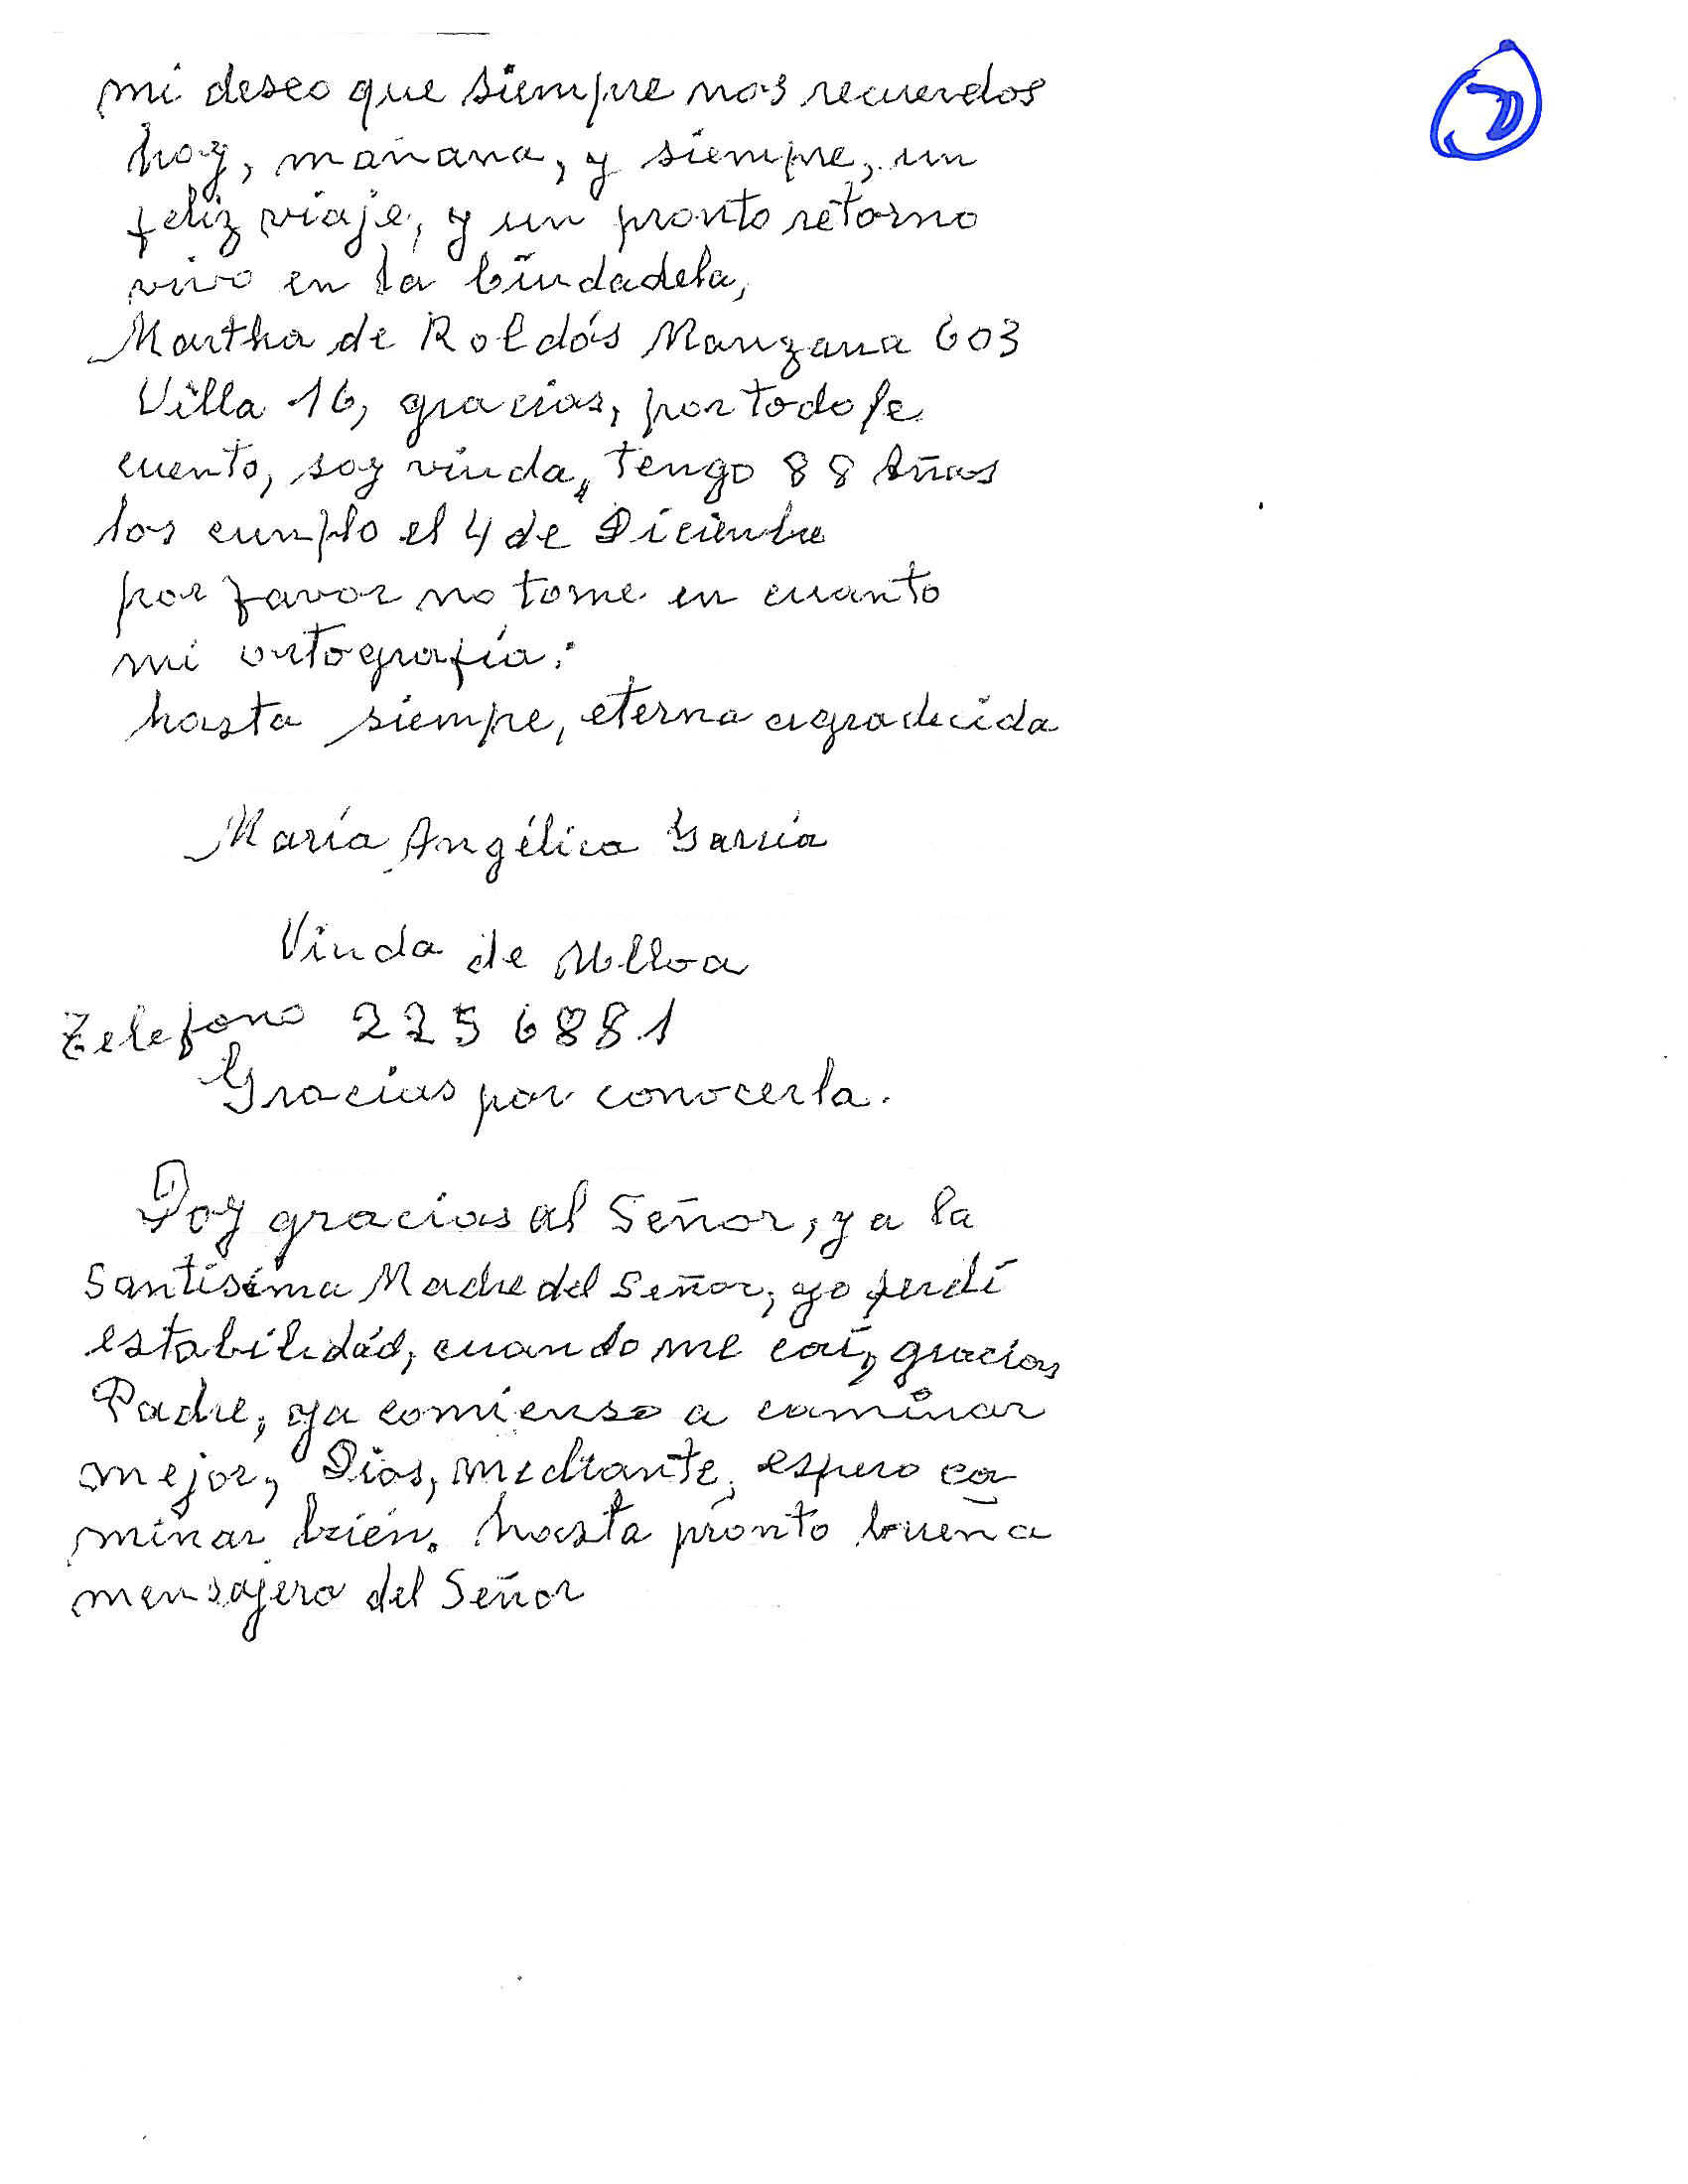 mi deseo que siempre nos recuerdos
hoy, mañana, y siempre, un
feliz viaje, y un pronto retorno
vivo en la Ciudadela,
Martha de Roldós Manzana 603
Villa 16, gracias, por todo le
cuento, soy viuda, tengo 88 Años
los cumplo el 4 de Diciembre
por favor no tome en cuanto
mi ortografía.
hasta siempre, eterna agradecida
María Angélica García
Viuda de Ulloa
Telefono 2256881
Gracias por conocerla.
Doy gracias al Señor, y a la
Santísima Madre del Señor, yo perdí
estabilidád, cuando me caí, gracias
Padre, ya comienso a caminar
mejor, Dios, mediante, espero ca
minar bién. hasta pronto buena
mensajera del Señor